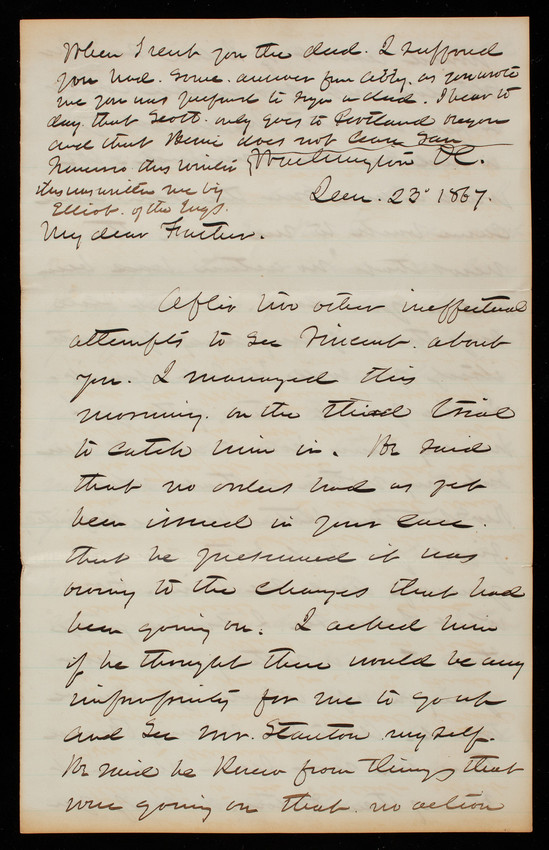 When I sent you the deed. I supposed
you had. some. answer from Abby. as you wrote
me you was prepared to sign a deed. I hear to
day that Scott. only goes to Portland oregon
and that Bessie does not leave San
Francisco this winter
Washington DC.
this was written me by
Elliot. of the Engs.
Decm. 23d 1867.
My dear Father.
After two other ineffectual
attempts to see Vincent. about
you. I managed this
morning. on the third trial
to catch him in. He said
that no orders had as yet
been issued in your case.
that he presumed it was
owing to the changes that had
been going on. I asked him
if he thought there would be any
impropriety for me to go up
and see Mr. Stanton myself.
He said he knew from things that
were going on that no action